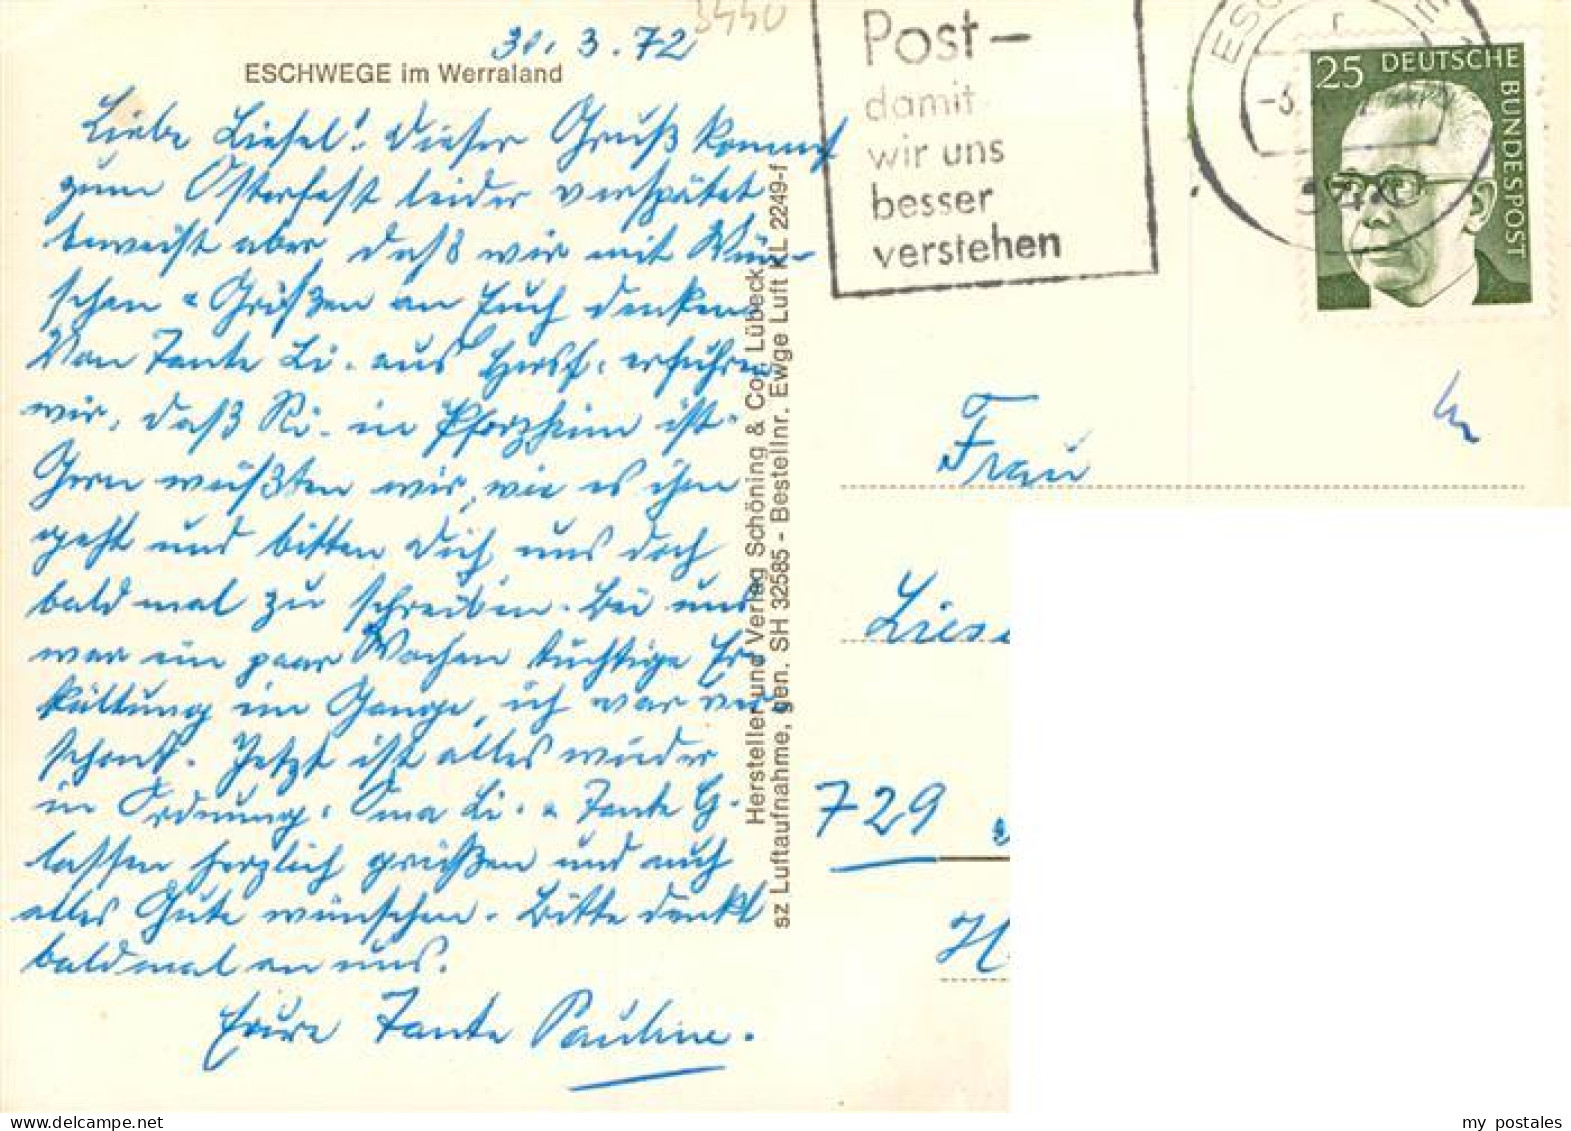 3440
30. 3. 72
ESCHWEGE im Werraland
Liebe Liesel! Dieser Gruß kommt
zum Osterfest leider verspätet
beweist aber, daß wir mit Wün-
schen u Grüßen an Euch denken.
Von Tante Li. aus Hersf. erfuhren
wir, daß Ri. in Pforzheim ist.
Gern wüßten wir, wie es ihm
geht und bitten Dich, uns doch
bald mal zu schreiben. Bei uns
war ein paar Wochen tüchtige Er-
kältung im Gange, ich war ver-
schont. Jetzt ist alles wieder
in Ordnung. Oma Li. u Tante G.
lassen herzlich grüßen und auch
alles Gute wünschen. Bitte denkt
bald mal an uns.
Eure Tante Pauline.
Hersteller und Verlag Schöning & Co., Lübeck
sz Luftaufnahme, gen. SH 32585 - Bestellnr. Ewge Luft KL 2249-f
Post-
damit
wir uns
besser
verstehen
25 DEUTSCHE
BUNDESPOST
Frau
Liese
729
H
my postales